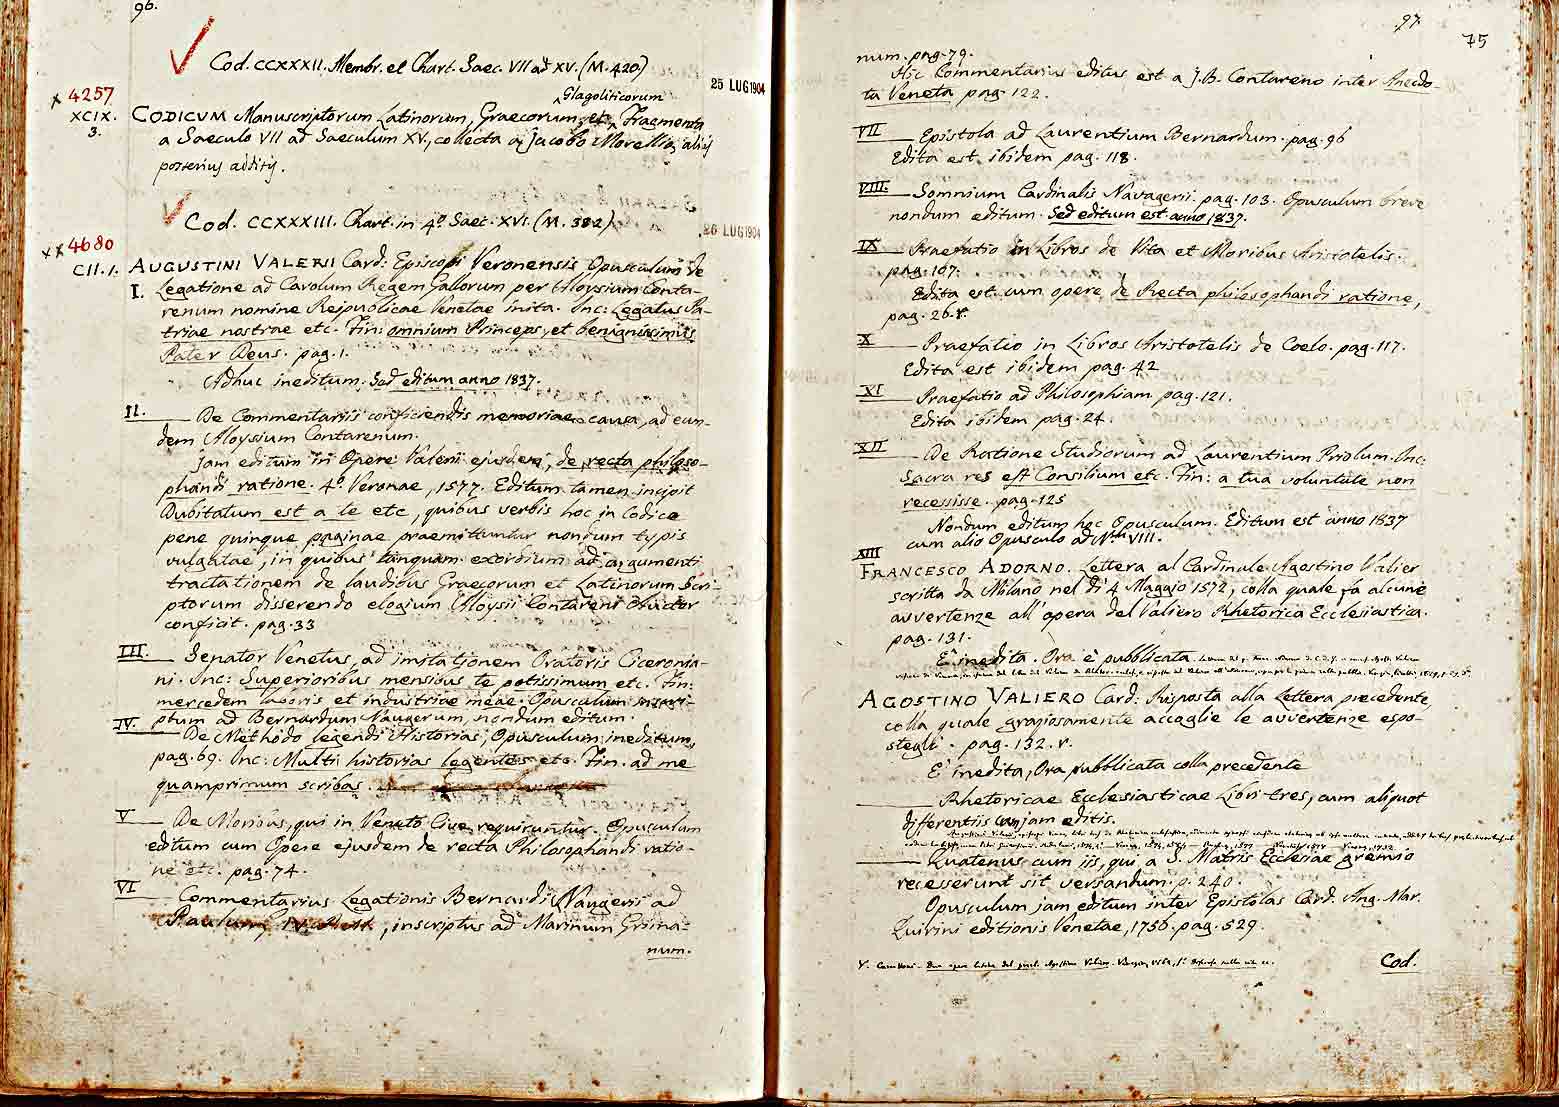 96.
Cod. CCXXXII. Membr. et Chart. Saec. VII ad XV. (M. 420)
25 LUG 1904
4257
XCIX.
3.
Glagoliticorum
CODICUM Manuscriptorum Latinorum, Graecorum, et Fragmenta
a Saeculo VII ad Saeculum XV, collecta a Jacobo Morellio, aliis
posterius additis.
Cod. CCXXXIII. Chart. in 4º. Saec. XVI. (M. 382)
26 LUG 1904
4680
CII. 1.
AUGUSTINI VALERII Card: Episcopi Veronensis Opusculum de
I. Legatione ad Carolum Regem Gallorum per Aloysium Conta-
renum nomine Reipublicae Venetae inita. Inc: Legatus Pa-
triae nostrae etc. Fin: omnium Princeps, et benignissimus
Pater Deus. pag. 1.
Adhuc ineditum. Sed editum anno 1837.
II. De Commentariis conficiendis memoriae causa, ad eun-
dem Aloysium Contarenum.
Jam editum in Opere Valerii ejusdem, de recta philoso-
phandi ratione. 4º. Veronae, 1577. Editum tamen incipit
Dubitatum est a te etc, quibus verbis hoc in Codice
pene quinque paginae praemittuntur nondum typis
vulgatae, in quibus tanquam exordium ad argumenti
tractationem de laudibus Graecorum et Latinorum Scri-
ptorum disserendo elogium Aloysii Contareni Auctor
conficit. pag. 33
III. Senator Venetus, ad imitationem Oratoris Ciceronia-
ni. Inc: Superioribus mensibus te potissimum etc. Fin:
mercedem laboris et industriae meae. Opusculum inscri-
ptum ad Bernardum Naugerum, nondum editum.
IV. De Methodo legendi Historias, Opusculum ineditum,
pag. 69. Inc: Multi historias legentes etc. Fin. ad me
quamprimum scribas.
V De Moribus, qui in Veneto Cive requiruntur. Opusculum
editum cum Opere ejusdem de recta Philosophandi ratio-
ne etc. pag. 74.
VI Commentarius Legationis Bernardi Naugerii ad
Paulum IV , inscriptus ad Marinum Grima-
num.
97.
75
num. pag. 79.
Hic Commentarius editus est a J. B. Contareno inter Anecdo-
ta Veneta pag. 122.
VII Epistola ad Laurentium Bernardum. pag. 96
Edita est ibidem pag. 118.
VIII. Somnium Cardinalis Navagerii. pag. 103. Opusculum breve
nondum editum. Sed editum est anno 1837.
IX Praefatio in Libros de Vita et Moribus Aristotelis.
pag. 107.
Edita est cum opere de Recta philosophandi ratione,
pag. 26. r.
X Praefatio in Libros Aristotelis de Coelo. pag. 117.
Edita est ibidem pag. 42
XI Praefatio ad Philosophiam. pag. 121.
Edita ibidem pag. 24.
XII De Ratione Studiorum ad Laurentium Priolum. Inc:
Sacra res est Consilium etc. Fin: a tua voluntate non
recessisse. pag. 125
Nondum editum hoc Opusculum. Editum est anno 1837
cum alio Opusculo ad Num VIII.
XIII
FRANCESCO ADORNO. Lettera al Cardinale Agostino Valier
scritta da Milano nel dì 4 Maggio 1572, colla quale fa alcune
avvertenze all'opera del Valiero Rhetorica Ecclesiastica.
pag. 131.
E' inedita. Ora è pubblicata.
AGOSTINO VALIERO Card: Risposta alla Lettera precedente,
colla quale graziosamente accoglie le avvertenze espo-
stegli. pag. 132. r.
E' inedita, Ora pubblicata colla precedente
Rhetoricae Ecclesiasticae Libri tres, cum aliquot
differentiis jam editis.
Quatenus cum iis, qui a S. Matris Ecclesiae gremio
recesserunt sit versandum. p. 240.
Opusculum jam editum inter Epistolas Card. Ang. Mar.
Quirini editionis Venetae, 1756. pag. 529.
Cod.